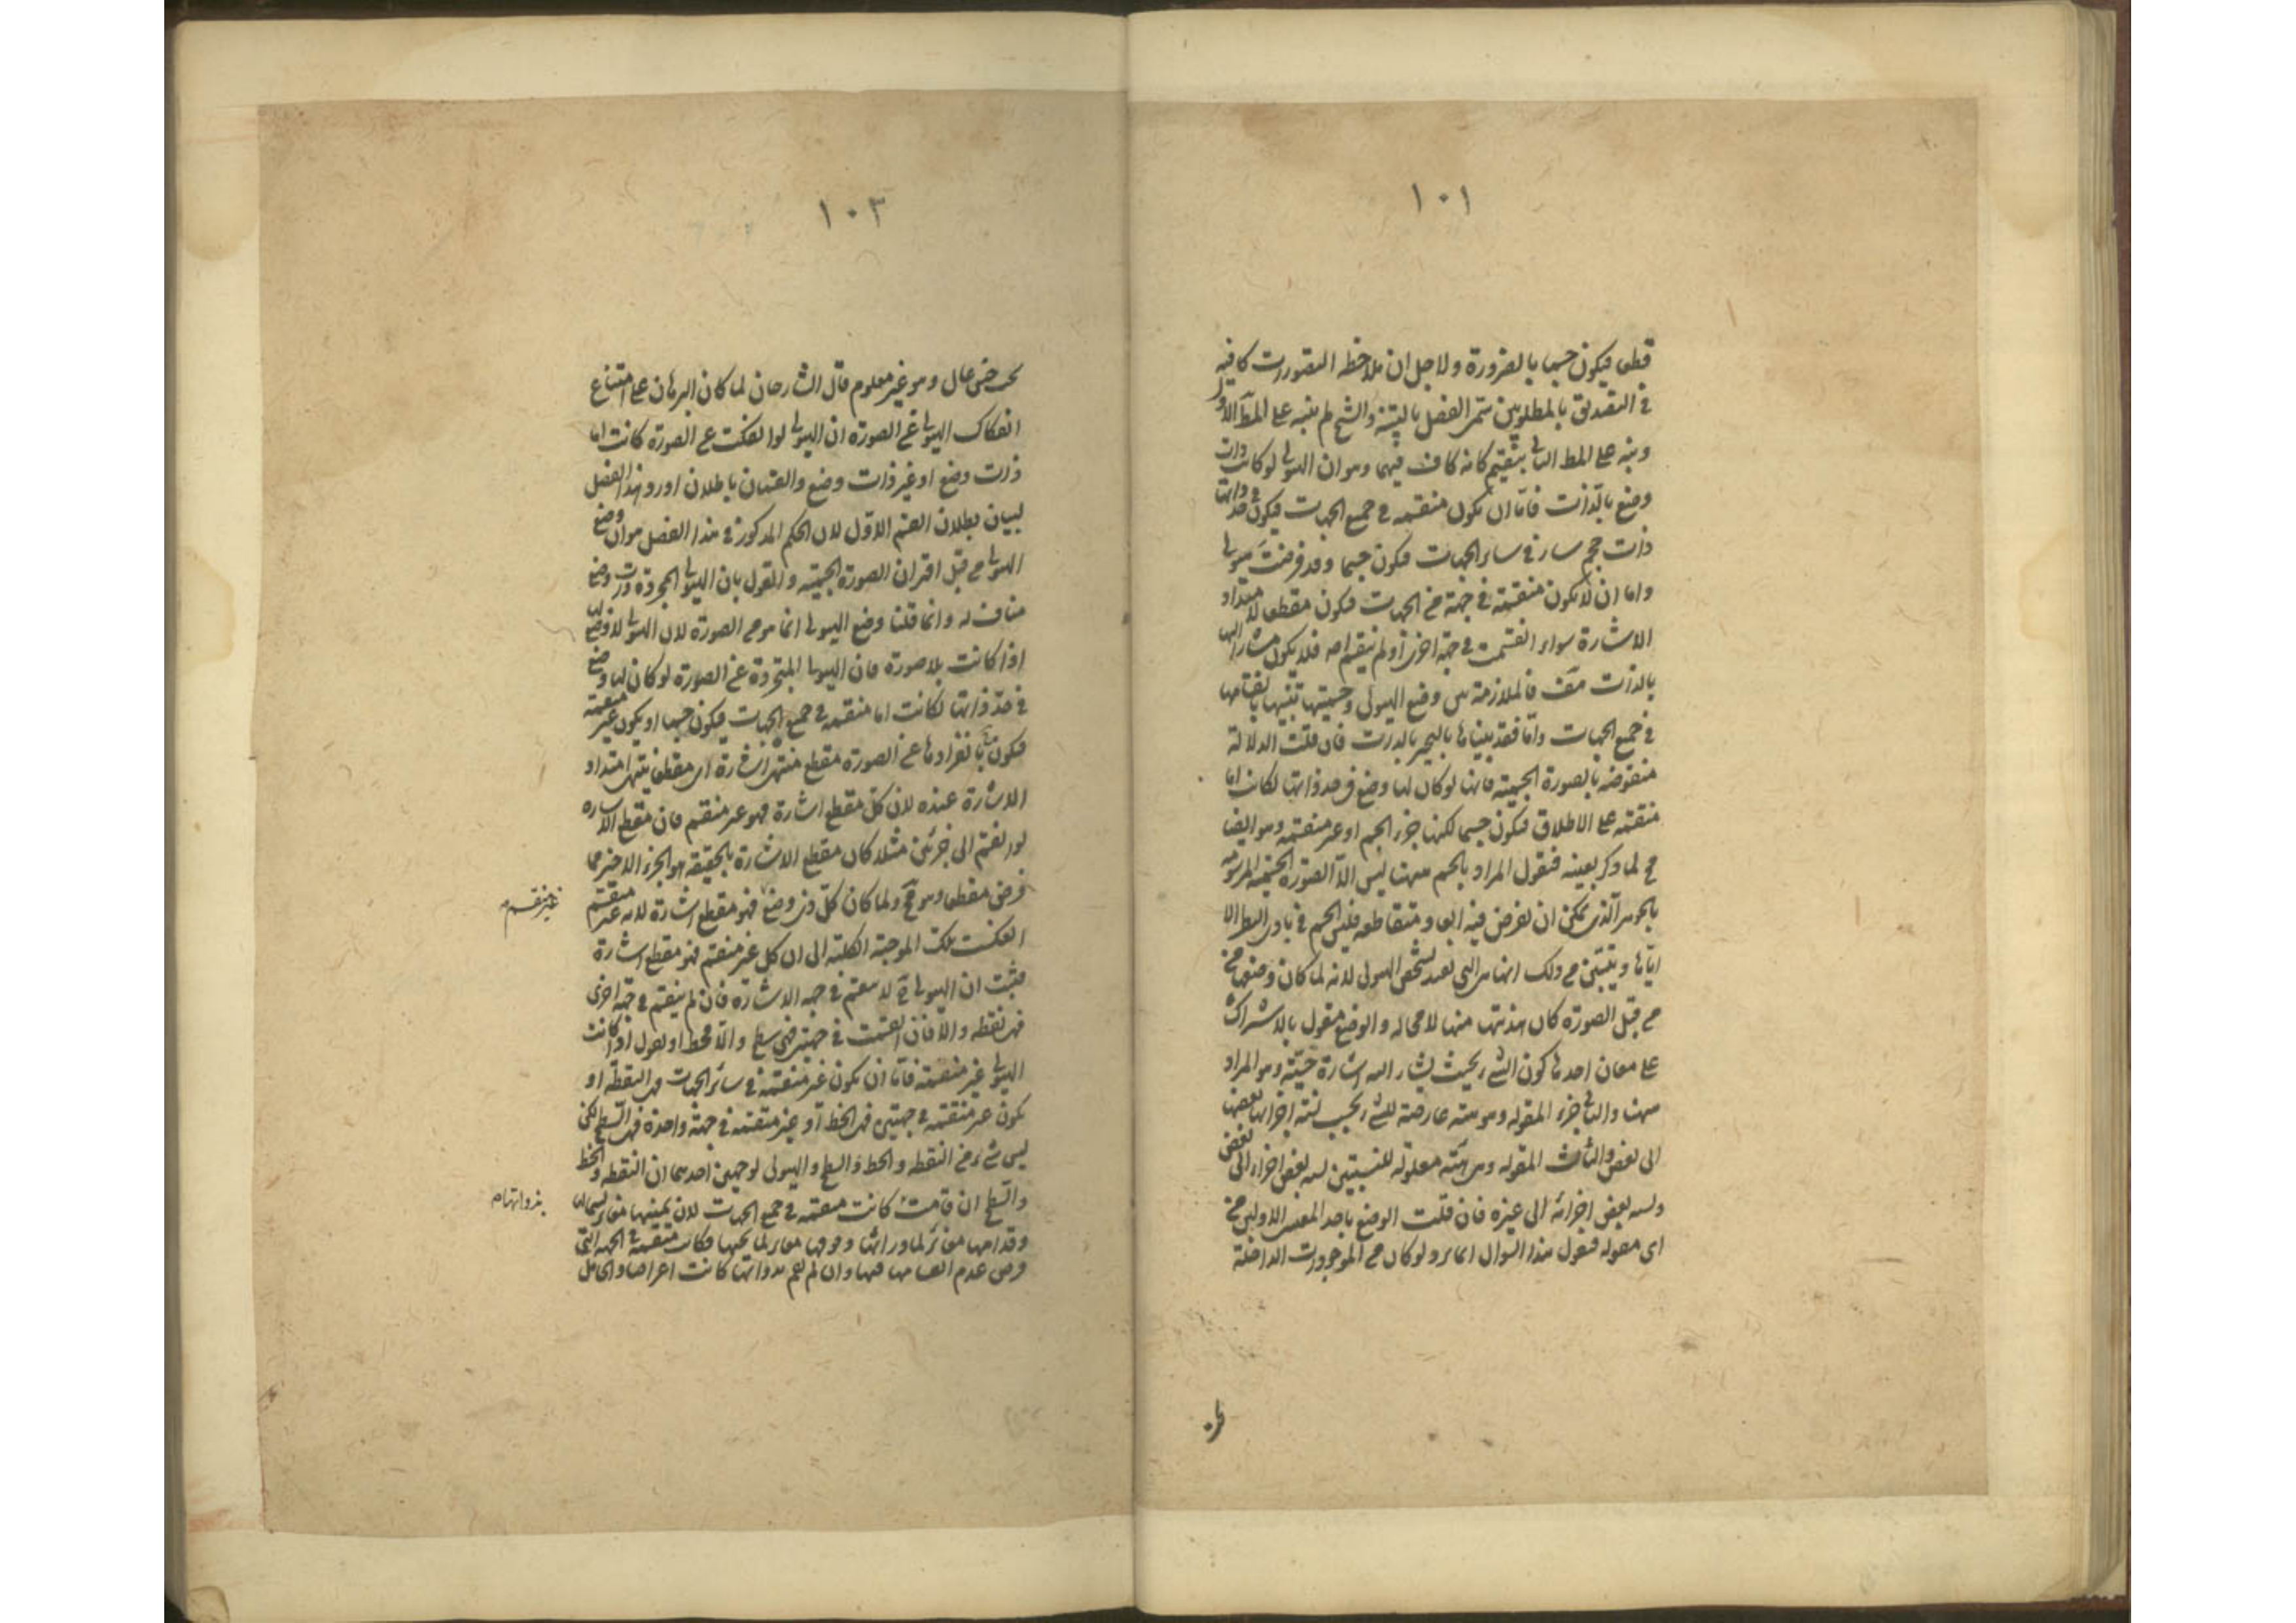 ١٠١
قطعا فيكون جسما بالضرورة ولاجل ان ملاحظة التصورات كافية
في التصديق بالمطلوبين سمى الفصل بالتنبيه والشيخ لم ينبه على المط الاول
ونبه على المط الثاني بتقسيم كانه كاف فيهما وهو ان الهيولى لو كانت ذات
وضع بالذات فاما ان يكون منقسمة في جميع الجهات فيكون في حد ذاتها
ذات حجم سار في سائر الجهات فيكون جسما وقد فرضت هيولى
واما ان لا يكون منقسمة في جهة من الجهات فيكون مقطعا لامتداد
الاشارة سواء انقسمت في جهة اخرى او لم ينقسم اصلا فلا يكون مشارا اليها
بالذات هف فالملازمة بين وضع الهيولى وجسميتها تنبيها بانقسامها
في جميع الجهات واما فقد بيناها بالتحيز بالذات فان قلت الدلالة
منقوضة بالصورة الجسمية فانها لو كان لها وضع في حد ذاتها لكانت اما
منقسمة على الاطلاق فيكون جسما لكنها جزء الجسم او غير منقسمة وهو ايضا
مح لما ذكر بعينه فنقول المراد بالجسم ههنا ليس الا الصورة الجسمية المرسومة
بالجوهر الذي يمكن ان يفرض فيه ابعاد متقاطعة فليس الجسم في بادى النظر الا
اياها ويتبين من ذلك انها هى التي تفيد تشخص الهيولى لانه لما كان وضعها
من قبل الصورة كان هذيتها منها لا محالة والوضع مقول بالاشتراك
على معان احدها كون الشىء بحيث يشار اليه اشارة حسية وهو المراد
ههنا والثاني جزء المقولة وهو هيئة عارضة للشىء بحسب نسبة اجزائه بعضها
الى بعض والثالث المقولة وهى هيئة معلولة للنسبتين نسبة بعض اجزائه الى بعض
ونسبة بعض اجزائه الى غيره فان قلت الوضع باحد المعنيين الاولين من
اى مقولة فنقول هذا السؤال انما يرد لو كان من الموجودات الداخلة
١٠٣
تحت جنس عال وهو غير معلوم قال الشارحان لما كان البرهان على امتناع
انفكاك الهيولى عن الصورة ان الهيولى لو انفكت عن الصورة كانت اما
ذات وضع او غير ذات وضع والقسمان باطلان اورد هذا الفصل
لبيان بطلان القسم الاول لان الحكم المذكور في هذا الفصل هو ان وضع
الهيولى من قبل اقتران الصورة الجسمية والقول بان الهيولى المجردة ذات وضع
مناف له وانما قلنا وضع الهيولى انما هو من الصورة لان الهيولى لا وضع لها
اذا كانت بلا صورة فان الهيولى المتجردة عن الصورة لو كان لها وضع
في حد ذاتها لكانت اما منقسمة في جميع الجهات فيكون جسما او يكون غير منقسمة
فيكون بانفرادها عن الصورة مقطع منتهى اشارة اى مقطعا ينتهى امتداد
الاشارة عنده لان كل مقطع اشارة فهو غير منقسم فان مقطع الاشارة
لو انقسم الى جزئين مثلا كان مقطع الاشارة بالحقيقة هو الجزء الاخير مما
فرض مقطعا وهو مح ولما كان كل ذي وضع فهو مقطع اشارة لانه غير منقسم
غير منقسم م
انعكست تلك الموجبة الكلية الى ان كل غير منقسم فهو مقطع اشارة
فثبت ان الهيولى ح لا ينقسم في جهة الاشارة فان لم ينقسم في جهة اخرى
فهى نقطة والا فان انقسمت في جهتين فهى سطح والا فخط او نقول اذا كانت
الهيولى غير منقسمة فاما ان يكون غير منقسمة في سائر الجهات فهى النقطة او
يكون غير منقسمة في جهتين فهى الخط او غير منقسمة في جهة واحدة فهى السطح لكن
ليس شىء من النقطة والخط والسطح والهيولى لوجهين احدهما ان النقطة والخط
والسطح ان قامت كانت منقسمة في جميع الجهات لان يمينها مغاير ليسارها
بذواتها م
وقدامها مغاير لما ورائها وفوقها مغاير لما تحتها فكانت منقسمة في الجهة التي
فرض عدم انقسامها فيها وان لم تقم بذواتها كانت اعراضا والحامل